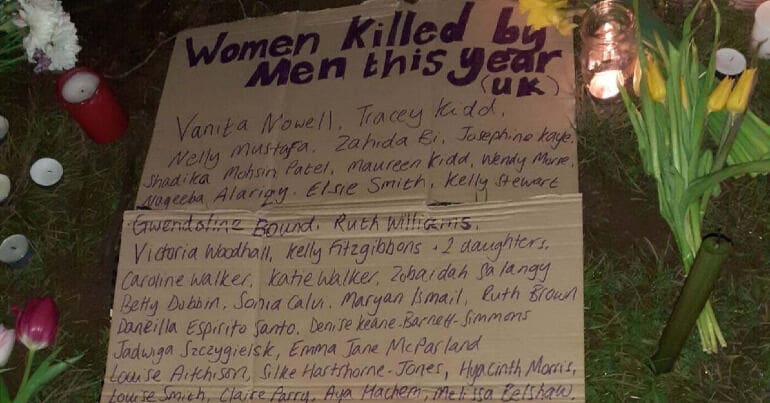 Women Killed by
Men this year
(UK)
Vanita Nowell, Tracey Kidd,
Nelly Mustafa, Zahida Bi, Josephine Kaye,
Shadika Mohsin Patel, Maureen Kidd, Wendy Morse,
Nageeba Alariqy, Elsie Smith, Kelly Stewart
Gwendoline Bound, Ruth Williams,
Victoria Woodhall, Kelly Fitzgibbons + 2 daughters,
Caroline Walker, Katie Walker, Zobaidah Salangy
Betty Dobbin, Sonia Calvi, Maryan Ismail, Ruth Brown
Daneilla Espirito Santo, Denise Keane-Barnett-Simmons
Jadwiga Szczygielsk, Emma Jane McParland
Louise Aitchison, Silke Hartshorne-Jones, Hyacinth Morris,
Louise Smith, Claire Parry, Aya Hachem, Melissa Belshaw,